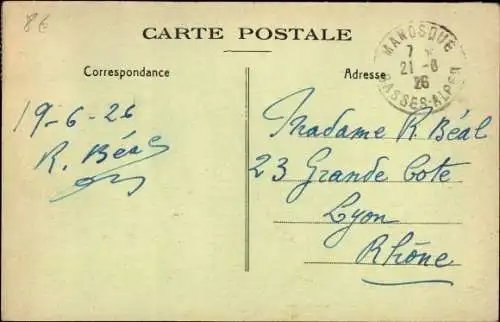 86
CARTE POSTALE
MANOSQUE
7
21-6
26
BASSES-ALPES
Correspondance
Adresse
19-6-26
R. Béal
Madame R. Béal
23 Grande Cote
Lyon
Rhône